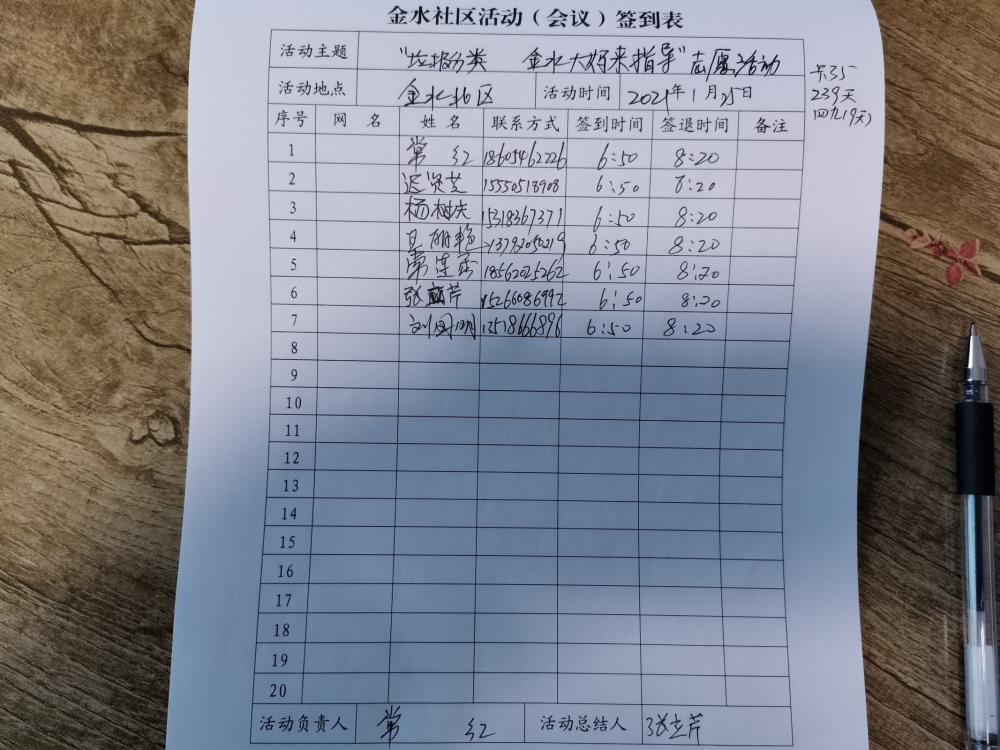 金水社区活动（会议）签到表
活动主题 "垃圾分类 金水大妈来指导"志愿活动
活动地点 金水社区 活动时间 2021年1月25日
卡35
239天
四九19天)
序号 网 名 姓 名 联系方式 签到时间 签退时间 备注
1 常 红 18605462226 6:50 8:20
2 迟贤芝 15550518908 6:50 8:20
3 杨树夫 15318367371 6:50 8:20
4 13792050219 6:50 8:20
5 常莲秀 18562025262 6:50 8:20
6 张 芹 15266086992 6:50 8:20
7 刘国明 13518666896 6:50 8:20
8
9
10
11
12
13
14
15
16
17
18
19
20
活动负责人 常 红 活动总结人 张立芹